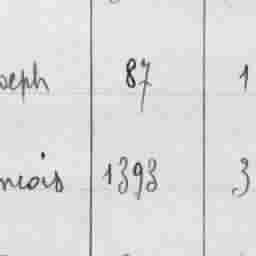 oseph 87 1
ncois 1393 3